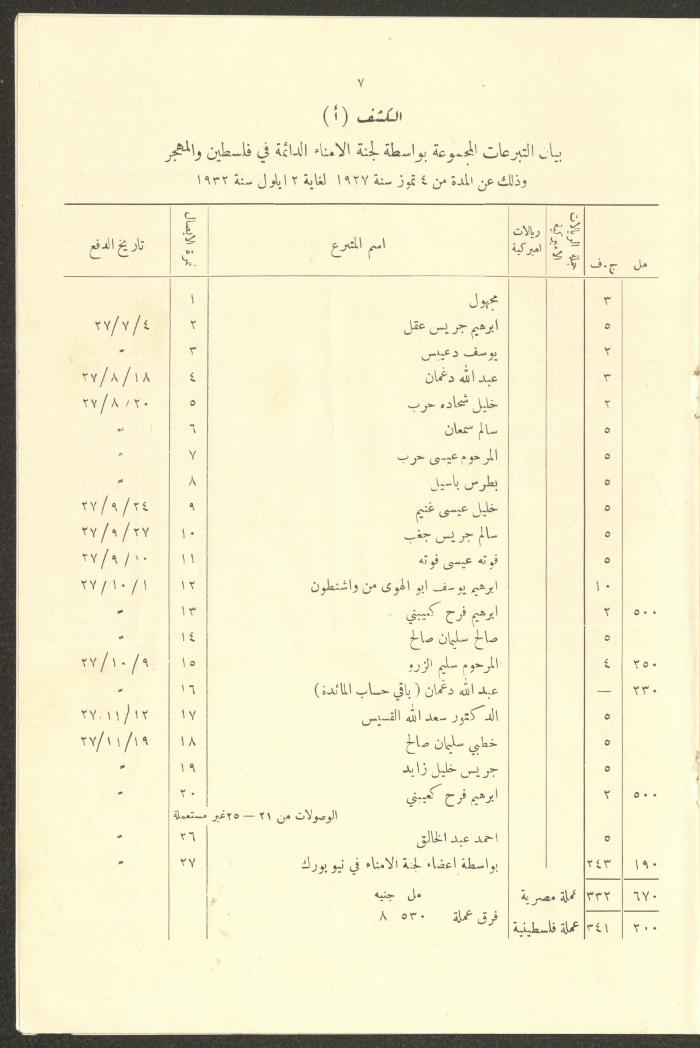 ٧
الكشف (أ)
بيان التبرعات المجموعة بواسطة لجنة الامناء الدائمة في فلسطين والمهجر
وذلك عن المدة من ٤ تموز سنة ١٩٢٧ لغاية ٢ ايلول سنة ١٩٣٢
مل ج.ف جملة الريالات الاميركية ريالات اميركية اسم المتبرع نمرة الايصال تاريخ الدفع
٣ مجهول ١
٥ ابرهيم جريس عقل ٢ ٢٧/٧/٤
٢ يوسف دعيبس ٣ "
٣ عبد الله دغمان ٤ ٢٧/٨/١٨
٢ خليل شحاده حرب ٥ ٢٧/٨/٢٠
٥ سالم سمعان ٦ "
٥ المرحوم عيسى حرب ٧ "
٥ بطرس باسيل ٨ "
٥ خليل عيسى غنيم ٩ ٢٧/٩/٢٤
٥ سالم جريس جغب ١٠ ٢٧/٩/٢٧
٥ فوته عيسى فوته ١١ ٢٧/٩/١٠
١٠ ابرهيم يوسف ابو الهوى من واشنطون ١٢ ٢٧/١٠/١
٥٠٠ ٢ ابرهيم فرح كعيبني ١٣ "
٥ صالح سليمان صالح ١٤ "
٢٥٠ ٤ المرحوم سليم الزرو ١٥ ٢٧/١٠/٩
٢٣٠ — عبد الله دغمان (باقي حساب المائدة) ١٦ "
٥ الدكتور سعد الله القسيس ١٧ ٢٧/١١/١٢
٥ خطبي سليمان صالح ١٨ ٢٧/١١/١٩
٥ جريس خليل زايد ١٩ "
٥٠٠ ٢ ابرهيم فرح كعيبني ٢٠ "
الوصولات من ٢١ — ٢٥ غير مستعملة
٥ احمد عبد الخالق ٢٦ "
١٩٠ ٢٤٣ بواسطة اعضاء لجنة الامناء في نيويورك ٢٧ "
٦٧٠ ٣٣٢ عملة مصرية مل جنيه
فرق عملة ٥٣٠ ٨
٢٠٠ ٣٤١ عملة فلسطينية